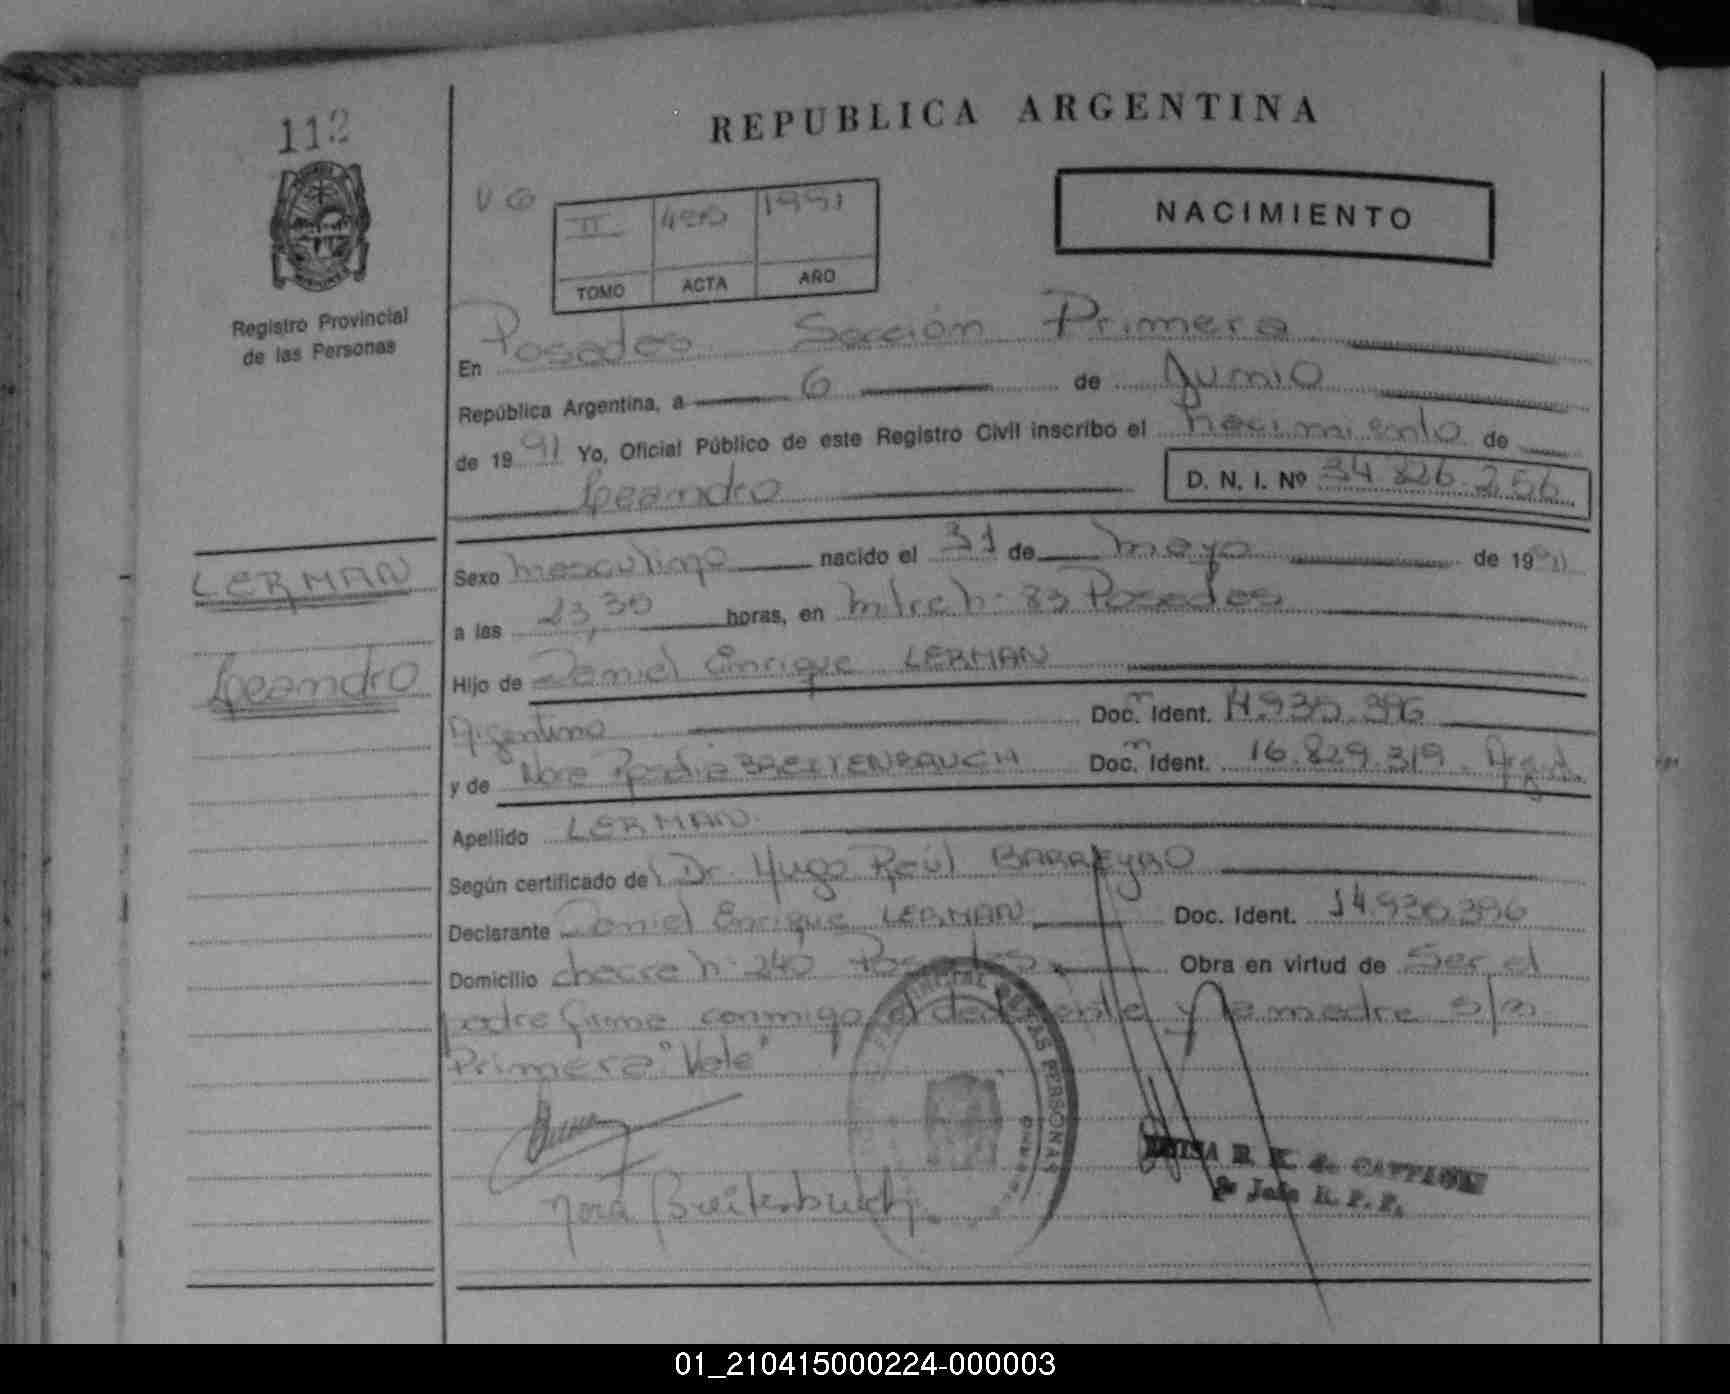 112
REPUBLICA ARGENTINA
NACIMIENTO
II 1991
TOMO ACTA AÑO
Registro Provincial
de las Personas
En Posadas Sección Primera
República Argentina, a 6 de Junio
de 1991 Yo, Oficial Público de este Registro Civil inscribo el nacimiento de
Leandro D. N. I. Nº 34.826.256
LERMAN
Leandro
Sexo masculino nacido el 31 de mayo de 1991
a las 23,30 horas, en Mitre nº 83 Posadas
Hijo de Daniel Enrique LERMAN
Argentino Doc. Ident. 14.930.396
y de Nora BREITENBAUCH Doc. Ident. 16.829.319. Argent.
Apellido LERMAN
Según certificado del Dr. Hugo Raúl BARREYRO
Declarante Daniel Enrique LERMAN Doc. Ident. 14.930.396
Domicilio nº 240 Posadas Obra en virtud de Ser el
padre firma conmigo el declarante y la madre
Primera "Vale"
Nora Breitenbauch
PROVINCIAL DE LAS PERSONAS
LUISA R. K. de
Jefe R. P. P.
01_210415000224-000003